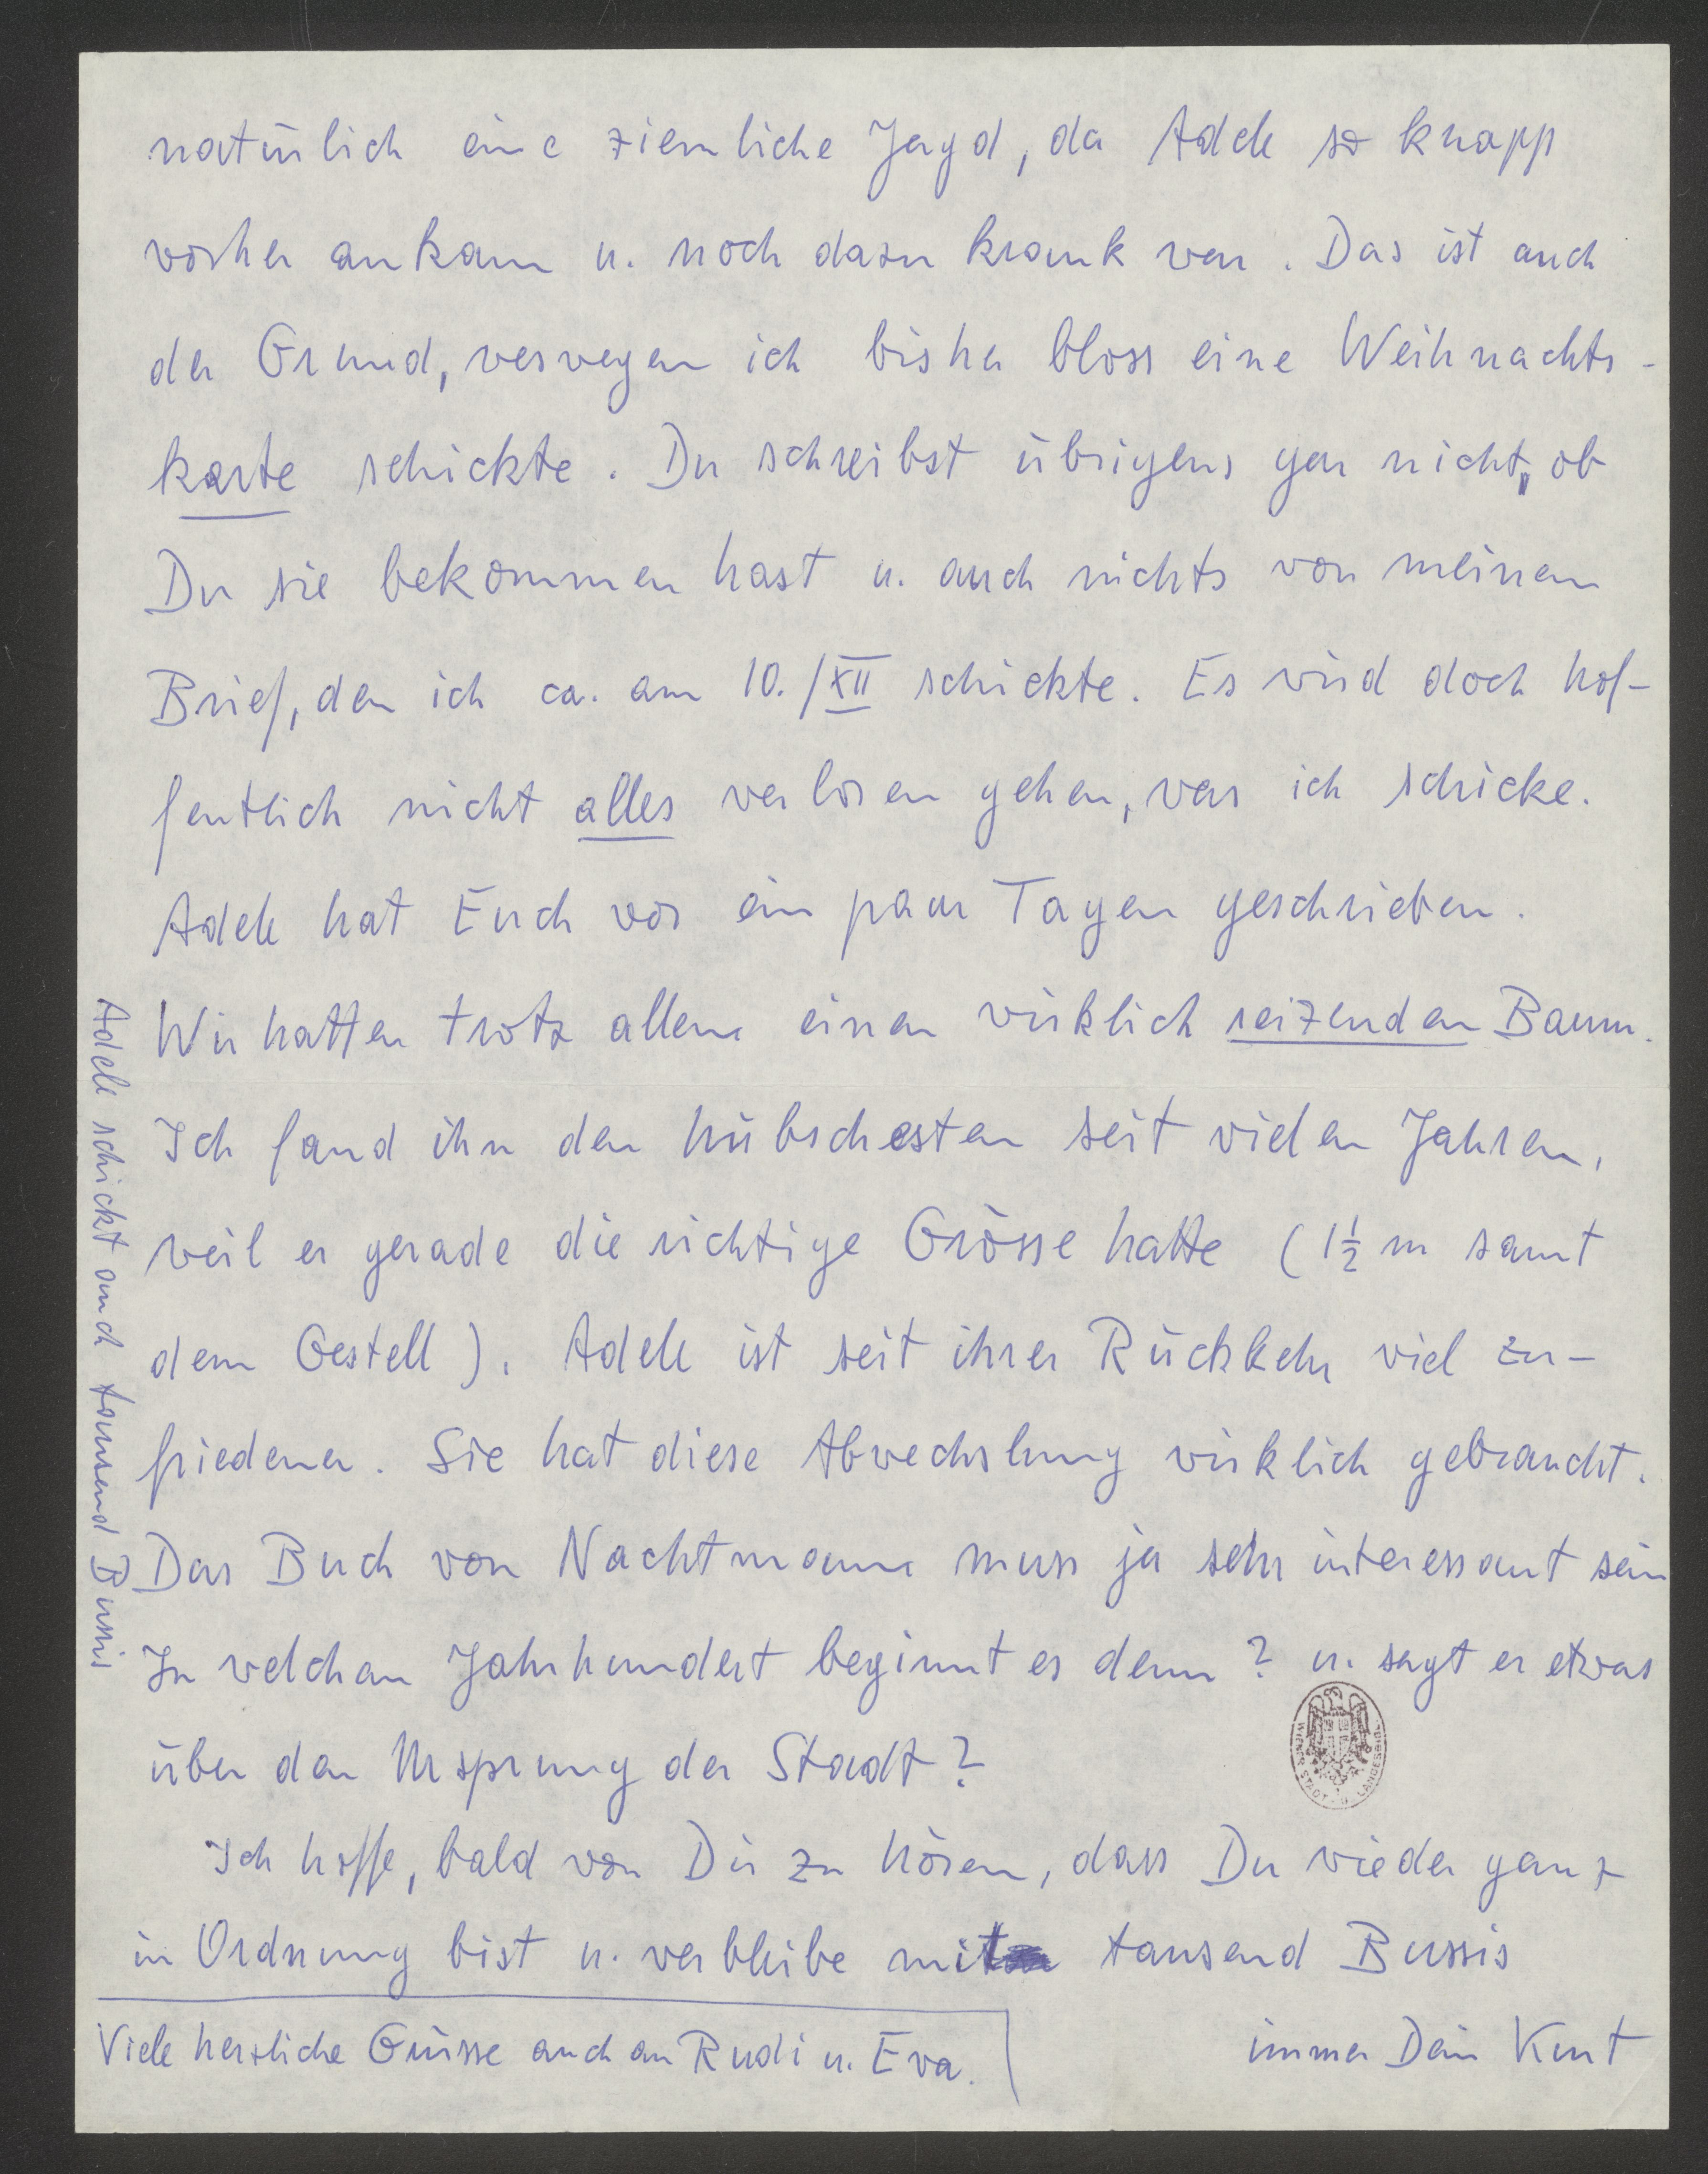 natürlich eine ziemliche Jagd, da Adele so knapp
vorher ankam u. noch dazu krank war. Das ist auch
der Grund, weswegen ich bisher bloss eine Weihnachts-
karte schickte. Du schreibst übrigens gar nicht, ob
Du sie bekommen hast u. auch nichts von meinem
Brief, den ich ca. am 10./XII schickte. Es wird doch hof-
fentlich nicht alles verloren gehen, was ich schicke.
Adele hat Euch vor ein paar Tagen geschrieben.
Wir hatten trotz allem einen wirklich reizenden Baum.
Ich fand ihn den hübschesten seit vielen Jahren,
weil er gerade die richtige Grösse hatte (1½ m samt
dem Gestell). Adele ist seit ihrer Rückkehr viel zu-
friedener. Sie hat diese Abwechslung wirklich gebraucht.
Das Buch von Nachtmann muss ja sehr interessant sein
In welchem Jahrhundert beginnt es denn? u. sagt er etwas
über den Ursprung der Stadt?
Ich hoffe, bald von Dir zu hören, dass Du wieder ganz
in Ordnung bist u. verbleibe mit tausend Bussis
immer Dein Kurt
Viele herzliche Grüsse auch an Rudi u. Eva.
Adele schickt auch tausend Bussis
WIENER STADT- U. LANDESBIBL.